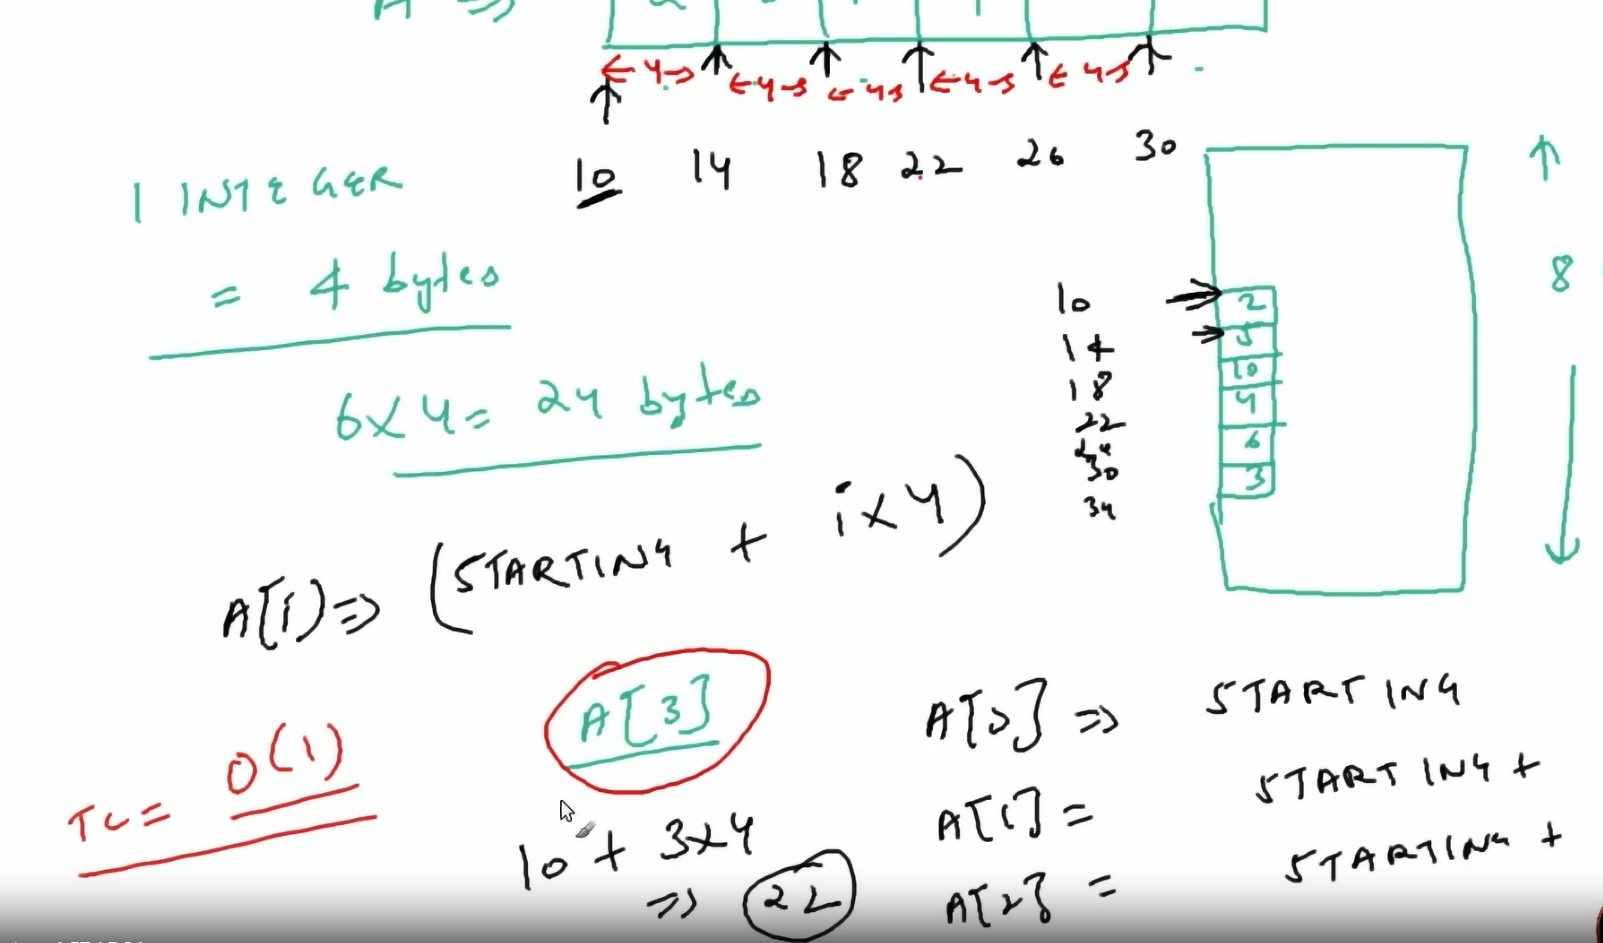 A =>
←4→ ←4→ ←4→ ←4→ ←4→
10 14 18 22 26 30
1 INTEGER
= 4 bytes
8
6x4= 24 bytes
10 2
14 5
18 10
22 4
6
30 3
34
A[i] => (STARTING + ix4)
A[3]
A[0] => STARTING
TC = O(1)
A[1] = STARTING +
10 + 3x4
=> 22
A[2] = STARTING +